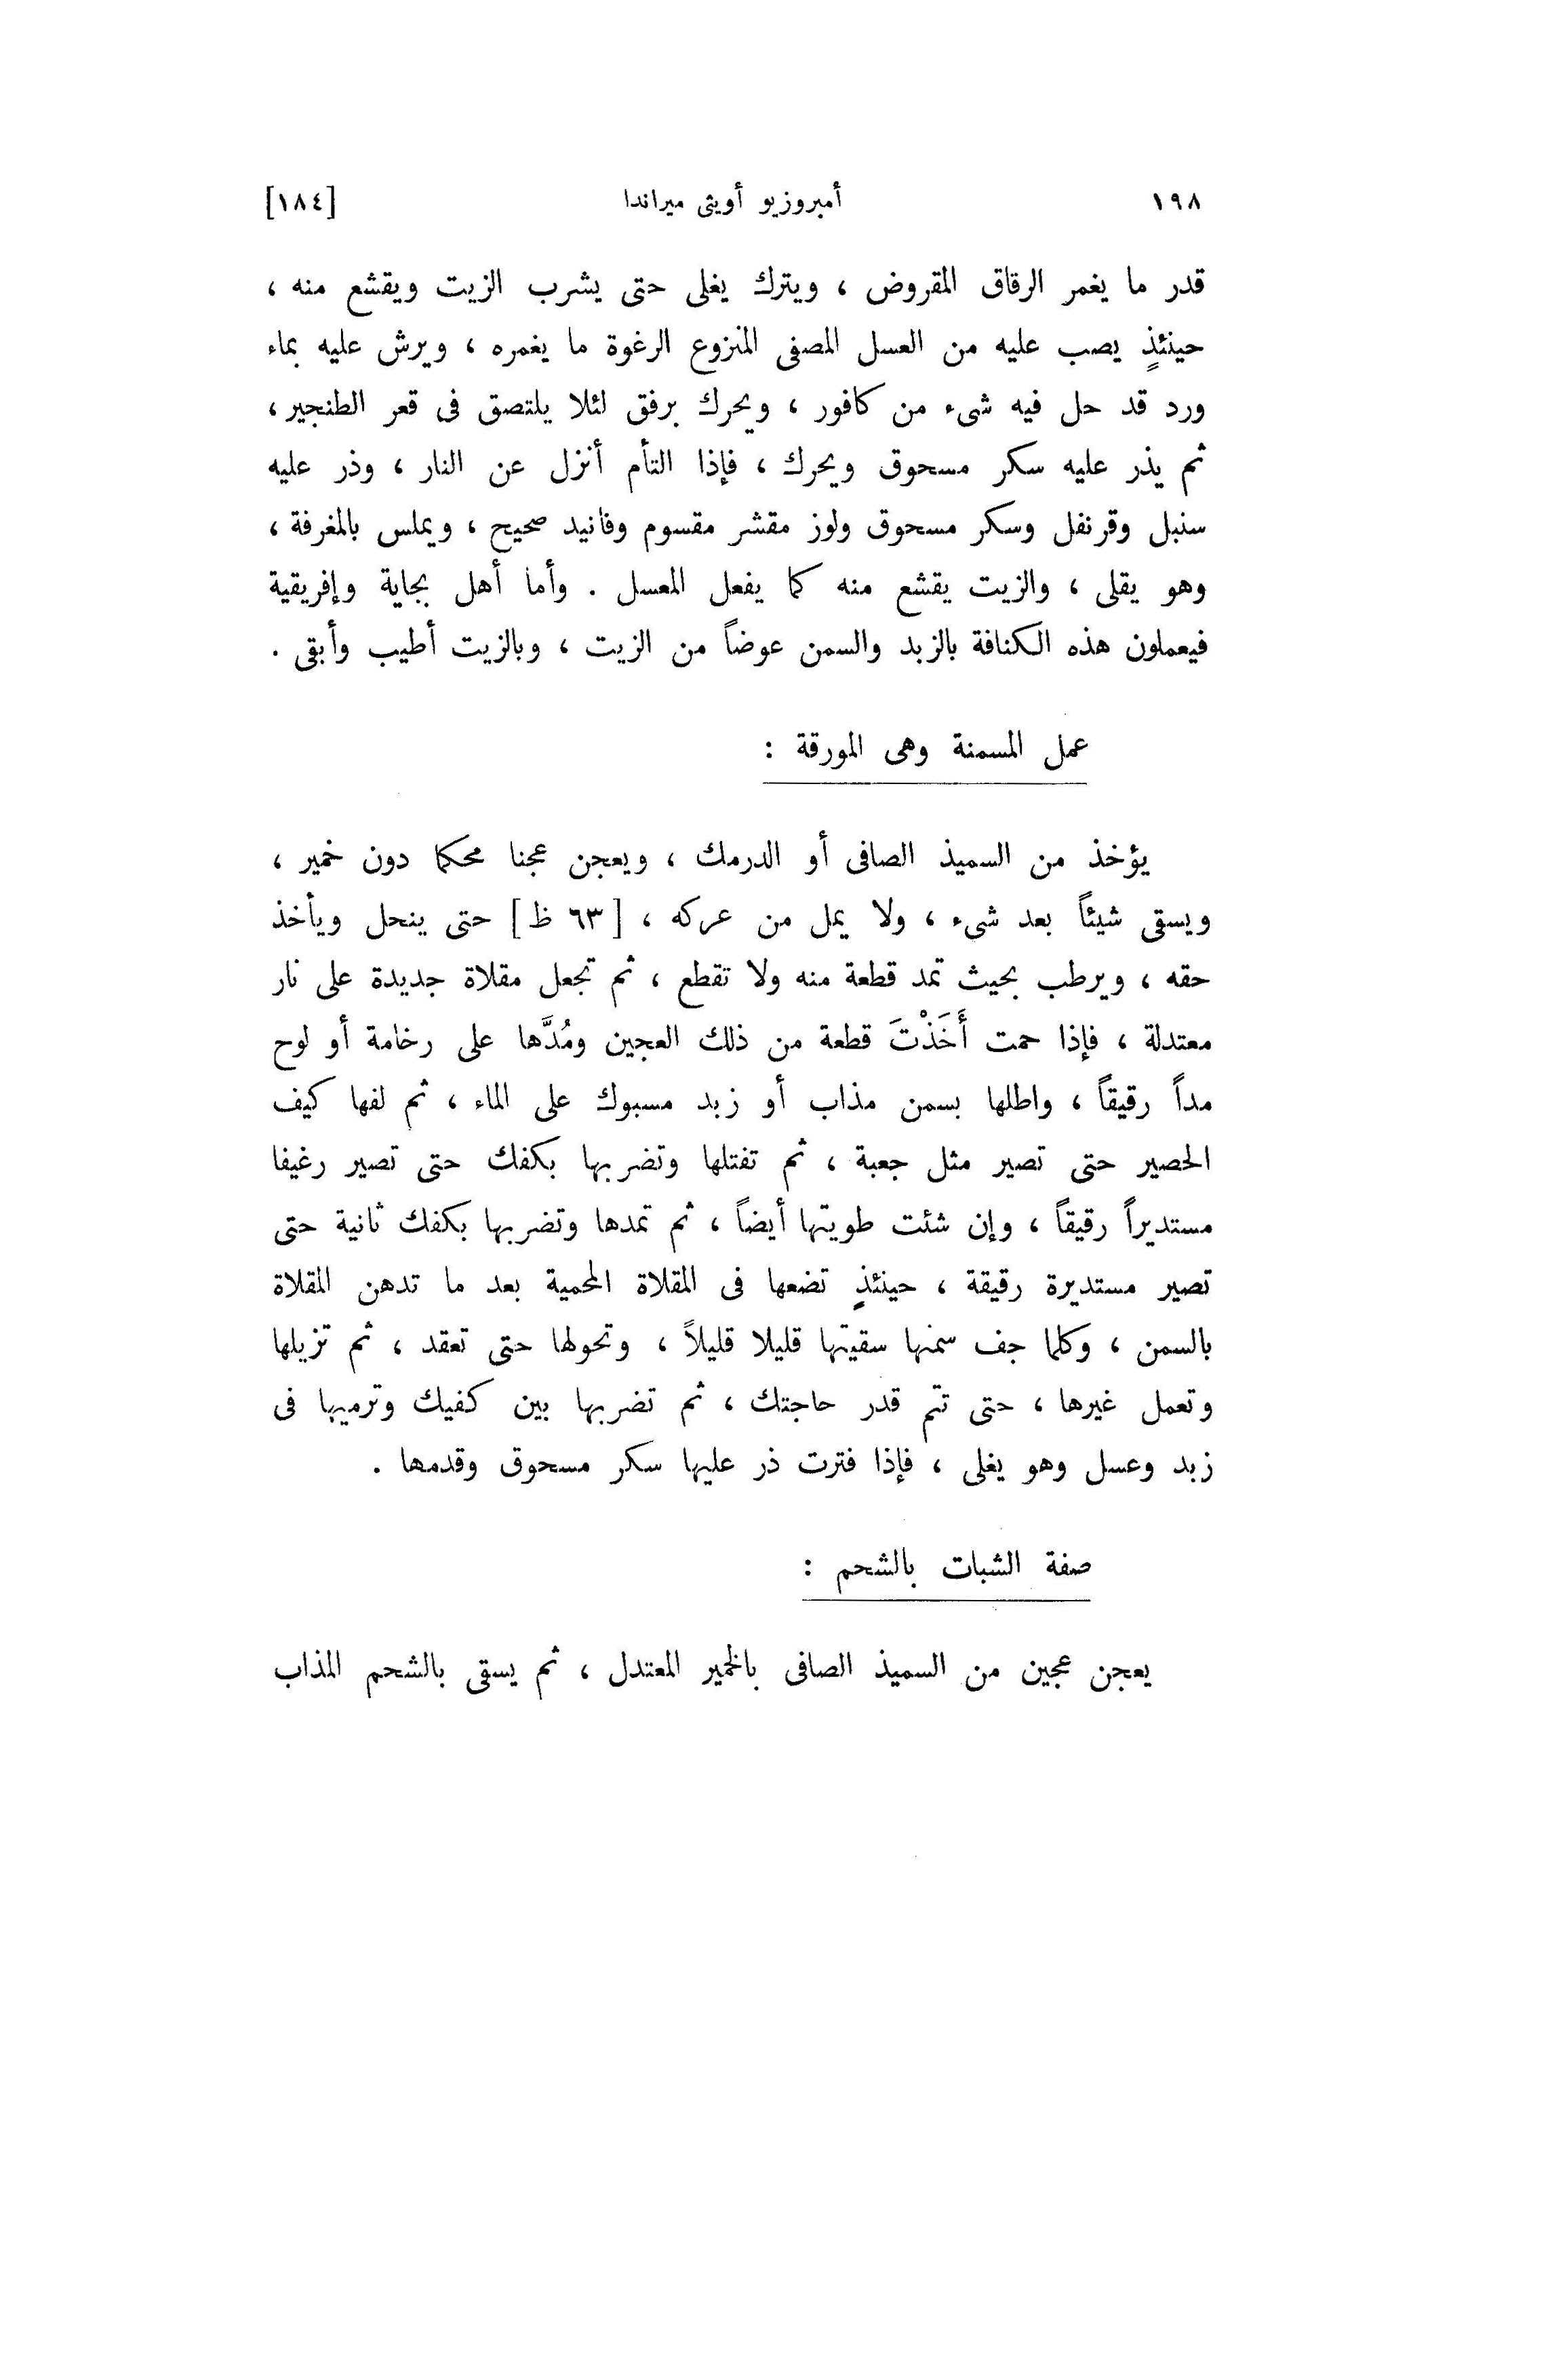 ١٩٨ أمبروزيو أويثى ميراندا [١٨٤]
قدر ما يغمر الرقاق المقروض ، ويترك يغلى حتى يشرب الزيت ويقشع منه ،
حينئذٍ يصب عليه من العسل المصفى المنزوع الرغوة ما يغمره ، ويرش عليه بماء
ورد قد حل فيه شىء من كافور ، ويحرك برفق لئلا يلتصق فى قعر الطنجير ،
ثم يذر عليه سكر مسحوق ويحرك ، فإذا التأم أنزل عن النار ، وذر عليه
سنبل وقرنفل وسكر مسحوق ولوز مقشر مقسوم وفانيد صحيح ، ويملس بالمغرفة ،
وهو يقلى ، والزيت يقشع منه كما يفعل المعسل . وأما أهل بجاية وإفريقية
فيعملون هذه الكنافة بالزبد والسمن عوضاً من الزيت ، وبالزيت أطيب وأبقى .
عمل المسمنة وهى المورقة :
يؤخذ من السميذ الصافى أو الدرمك ، ويعجن عجنا محكما دون خمير ،
ويسقى شيئاً بعد شىء ، ولا يمل من عركه ، [ ٦٣ ظ ] حتى ينحل ويأخذ
حقه ، ويرطب بحيث تمد قطعة منه ولا تقطع ، ثم تجعل مقلاة جديدة على نار
معتدلة ، فإذا حمت أَخَذْتَ قطعة من ذلك العجين ومُدَّها على رخامة أو لوح
مداً رقيقاً ، واطلها بسمن مذاب أو زبد مسبوك على الماء ، ثم لفها كيف
الحصير حتى تصير مثل جعبة ، ثم تفتلها وتضربها بكفك حتى تصير رغيفا
مستديراً رقيقاً ، وإن شئت طويتها أيضاً ، ثم تمدها وتضربها بكفك ثانية حتى
تصير مستديرة رقيقة ، حينئذٍ تضعها فى المقلاة المحمية بعد ما تدهن المقلاة
بالسمن ، وكلما جف سمنها سقيتها قليلا قليلاً ، وتحولها حتى تعقد ، ثم تزيلها
وتعمل غيرها ، حتى تتم قدر حاجتك ، ثم تضربها بين كفيك وترميها فى
زبد وعسل وهو يغلى ، فإذا فترت ذر عليها سكر مسحوق وقدمها .
صفة الشبات بالشحم :
يعجن عجين من السميذ الصافى بالخمير المعتدل ، ثم يسقى بالشحم المذاب